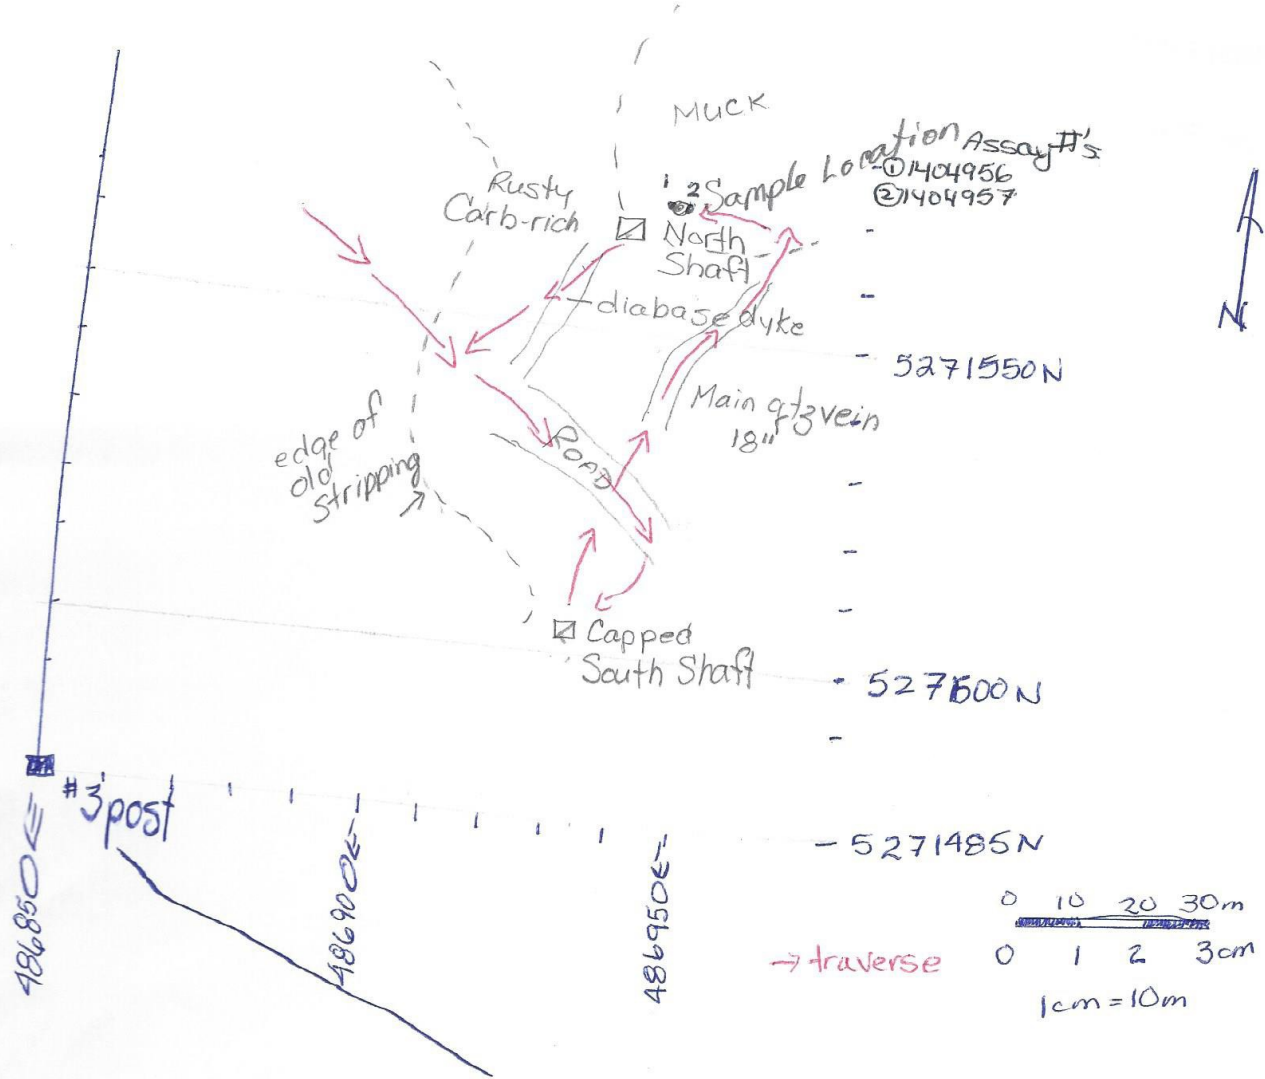 MUCK
Sample Location
Assay #'s
①1404956
②1404957
1 2
Rusty
Carb-rich
North
Shaft
diabase dyke
5271550N
Main qtz vein
18"
ROAD
edge of
old
stripping
Capped
South Shaft
5271500N
#3 post
5271485N
486850E
486900E
486950E
N
→ traverse
0 10 20 30m
0 1 2 3cm
1cm = 10m